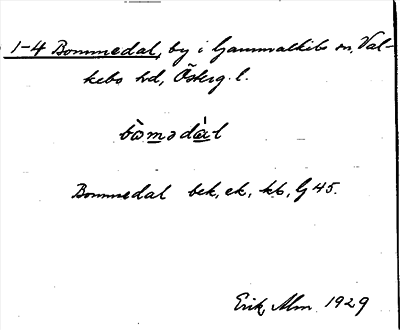 1-4 Bommedal, by i Gammalkils sn, Val-
kebo hd, Österg. l.
bòmədál
Bommedal bek, ek, kb, G 45.
Erik Alm 1929